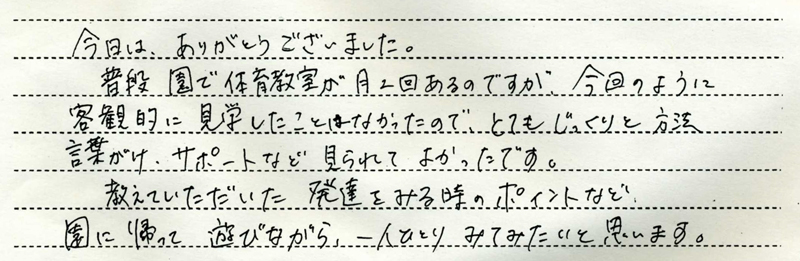 今日は、ありがとうございました。
普段 園で体育教室が月2回あるのですが、今回のように
客観的に見学したことはなかったので、とてもじっくりと方法
言葉がけ、サポートなど見られてよかったです。
教えていただいた 発達をみる時のポイントなど、
園に帰って 遊びながら、一人ひとり みてみたいと思います。